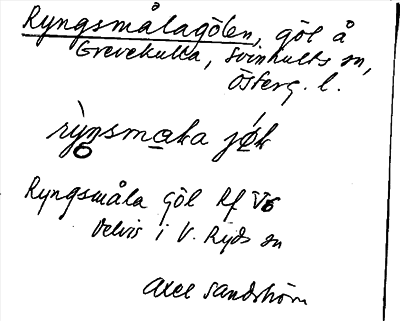 Ryngsmålagölen, göl å
Grevekulla, Svinhults sn,
Österg. l.
Ryngsmåla göl Rf V6
Delvis i V. Ryds sn
Axel Sandström